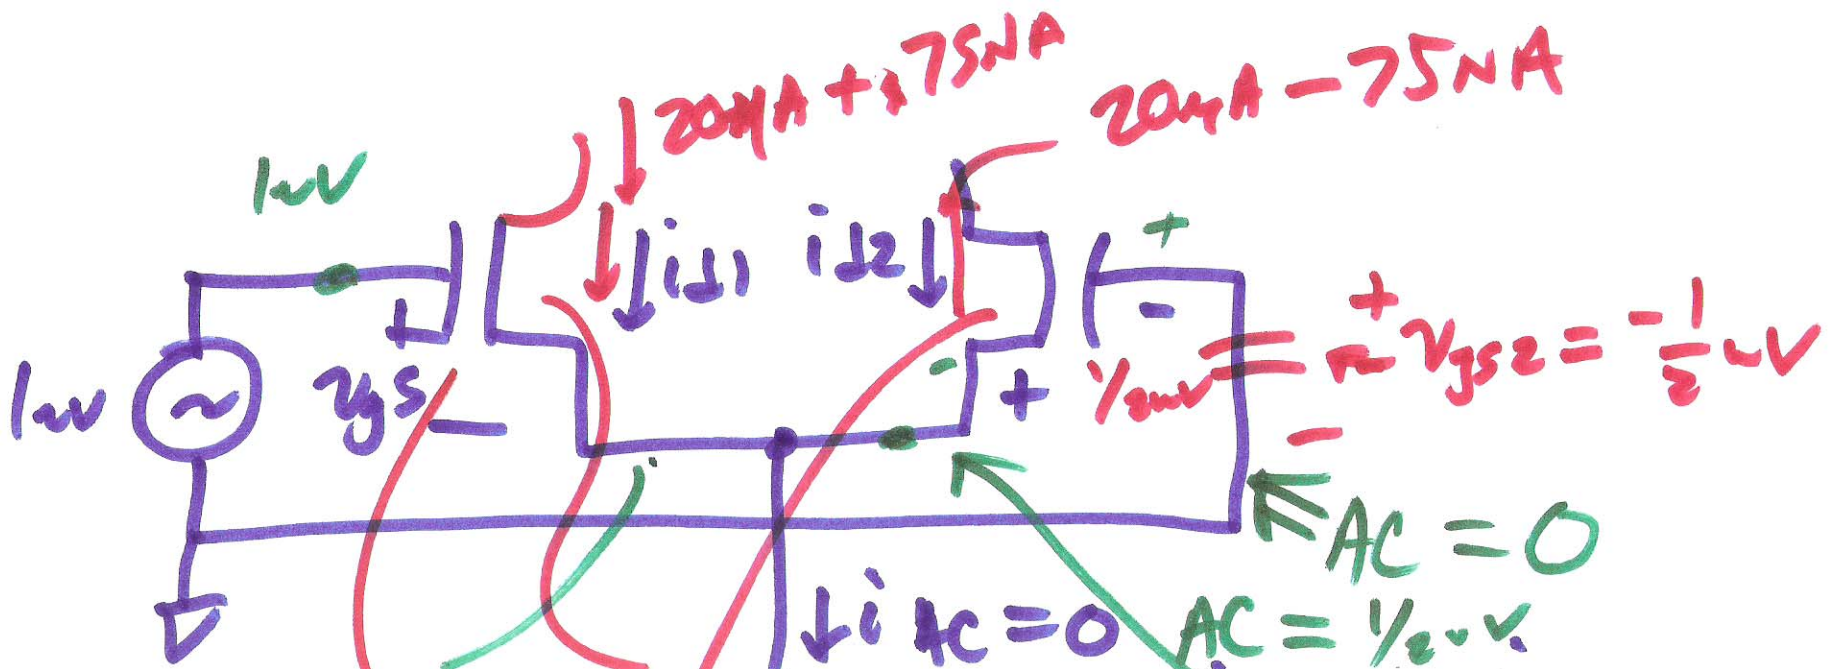 20µA + 75NA
20µA - 75NA
1mV
+
id1
id2
+
-
+
1mV
~
vgs
-
-
+
1/2mV
vgs2 = - 1/2 mV
-
AC = 0
i AC = 0
AC = 1/2mV